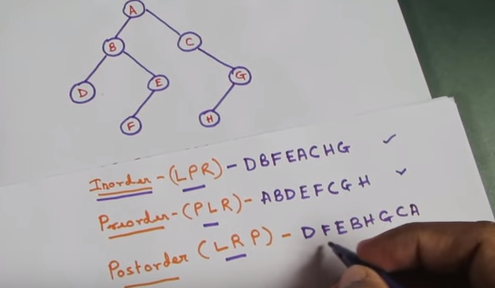 A
B C
D E G
F H
Inorder - (LPR) - DBFEACHG ✓
Preorder - (PLR) - ABDEFCGH ✓
Postorder (LRP) - DFEBHGCA